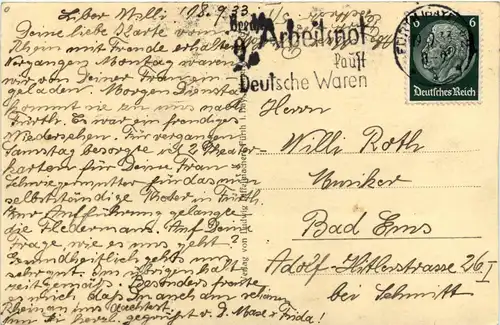 Lieber Willi! 108.9.33.
Deine liebe Karte vom
Rhein mit Freude erhalten
Vergangen Montag waren
wir von Deiner Frau ein-
geladen. Morgen Dienstag
kommt sie zu uns nach
Fürth. Es war ein freudiges
Wiedersehen. Für vergangen
Samstag besorgte ich 2 Theater-
karten für Deine Frau +
Schwiegermutter für das nun
selbstständige Theater in Fürth.
Zur Aufführung gelangte
die Fledermaus. Auf Deine
Frage, wie es uns geht?
Gesundheitlich geht's uns
sehr gut. Im übrigen halt
zeitgemäss. Besonders freute
es mich, dass Du auch am schönen
Rheine an uns dachtest.
Sei herzl. gegrüßt v. D. Max + Frida!
Verlag von Ludwig Riffelmacher, Fürth i. Bay.
Arbeitsnot
kauft
Deutsche Waren
6 6
Deutsches Reich
Herrn
Willi Roth
Musiker
Bad Ems
Adolf-Hitlerstrasse 26 I
bei Schmitt